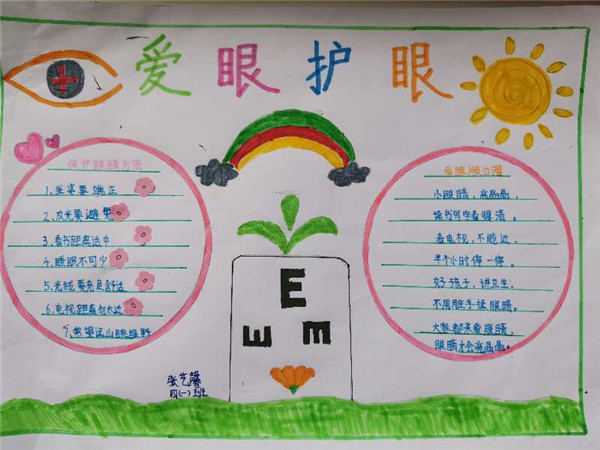 爱眼护眼
保护眼睛方法
1.坐姿要端正
2.反光要避免
3.看书距离适中
4.睡眠不可少
5.光线要亮度舒适
6.电视距离勿太近
7.常望远山眺绿野
爱眼顺口溜
小眼睛，亮晶晶，
读书写字看得清。
看电视，不能近，
半个小时停一停。
好孩子，讲卫生，
不用脏手揉眼睛。
大家都来爱眼睛，
眼睛才会亮晶晶。
E
E
E
张艺馨
四(一)班